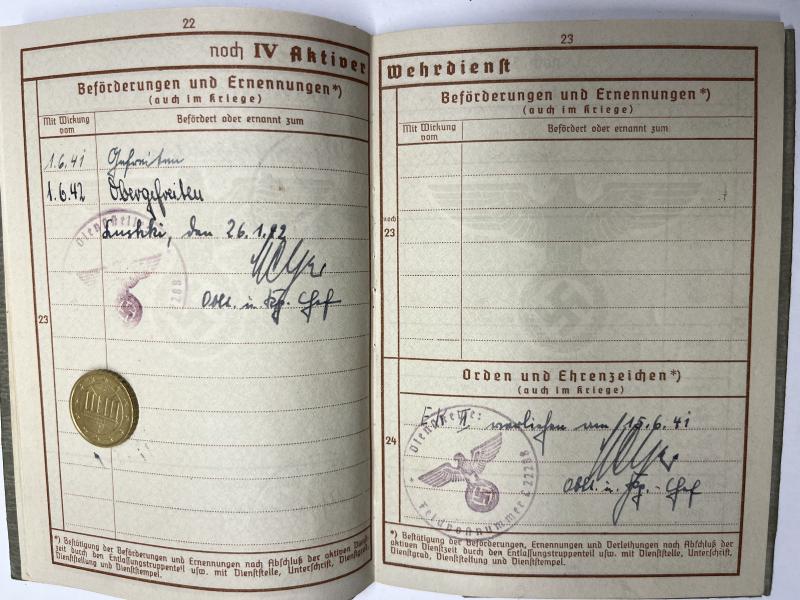 22
noch IV Aktiver
Beförderungen und Ernennungen*)
(auch im Kriege)
Mit Wirkung vom
Befördert oder ernannt zum
1.6.41 Gefreiten
1.6.42 Obergefreiten
den 26.1.42
Oblt. u. Kp. Chef
23
*) Bestätigung der Beförderungen, Ernennungen nach Abschluß der aktiven Dienst-
zeit durch den Entlassungstruppenteil usw. mit Dienststelle, Unterschrift, Dienstgrad,
Dienststellung und Dienststempel.
23
Wehrdienst
Beförderungen und Ernennungen*)
(auch im Kriege)
Mit Wirkung vom
Befördert oder ernannt zum
noch
23
Orden und Ehrenzeichen*)
(auch im Kriege)
verliehen am 15.6.41
Oblt. u. Kp.-Chef
Dienststelle:
Feldpostnummer
24
*) Bestätigung der Beförderungen, Ernennungen und Verleihungen nach Abschluß der
aktiven Dienstzeit durch den Entlassungstruppenteil usw. mit Dienststelle, Unterschrift,
Dienstgrad, Dienststellung und Dienststempel.